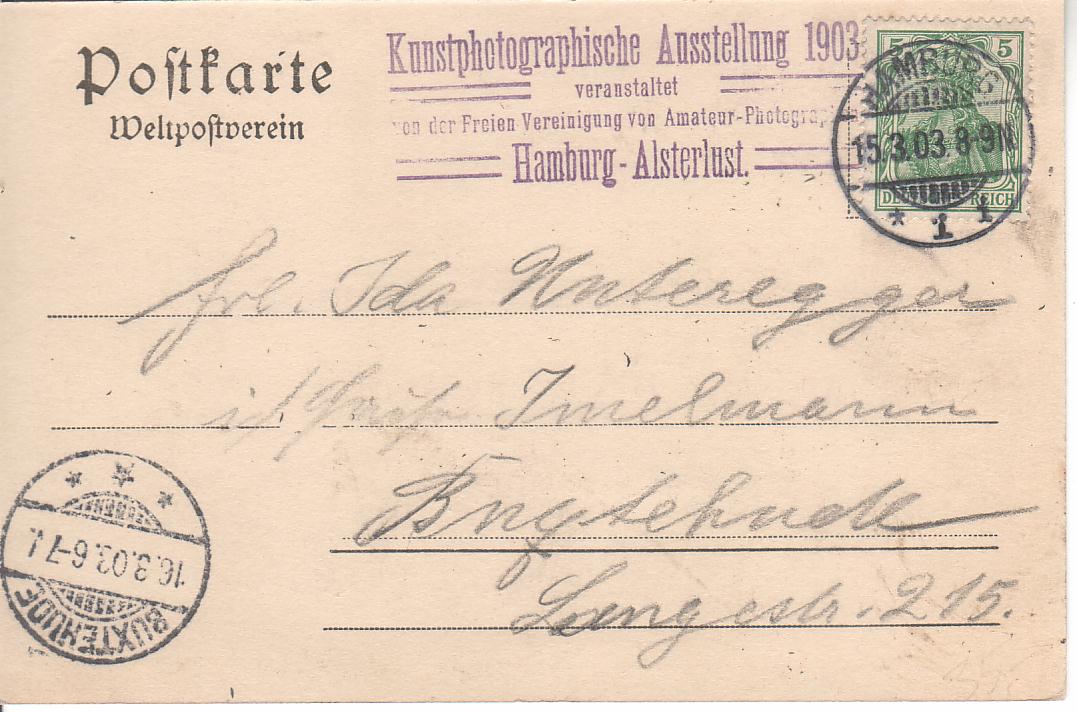 Postkarte
Weltpostverein
Kunstphotographische Ausstellung 1903
veranstaltet
von der Freien Vereinigung von Amateur-Photograp
Hamburg-Alsterlust.
5 5
DEUTSCHES REICH
HAMBURG
15.3.03.8-9N
* 1 i
Frl. Ida Unteregger
Imelmann
Buxtehude
Langestr. 215.
16.3.03.6-7
BUXTEHUDE